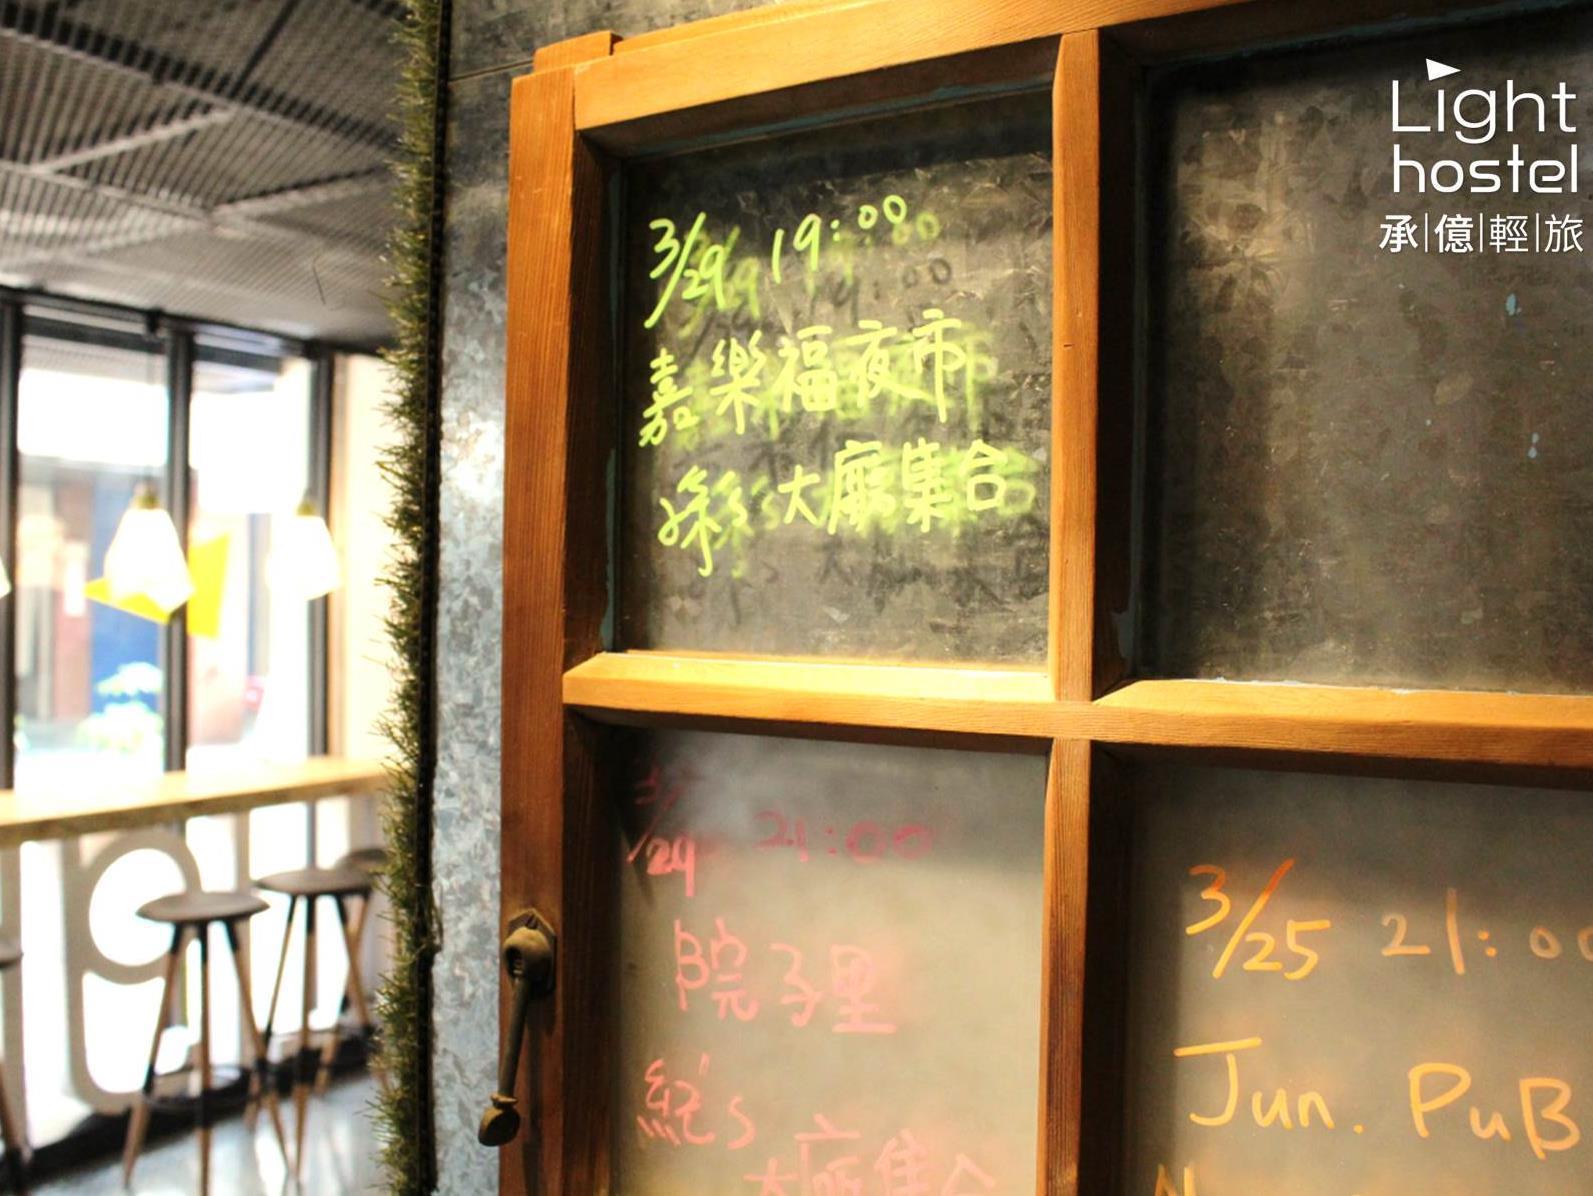 Light
hostel
承億輕旅
3/29 19:00
嘉樂福夜市
大廳集合
3/29 21:00
院子里
大廳集合
3/25 21:00
Jun. PuB